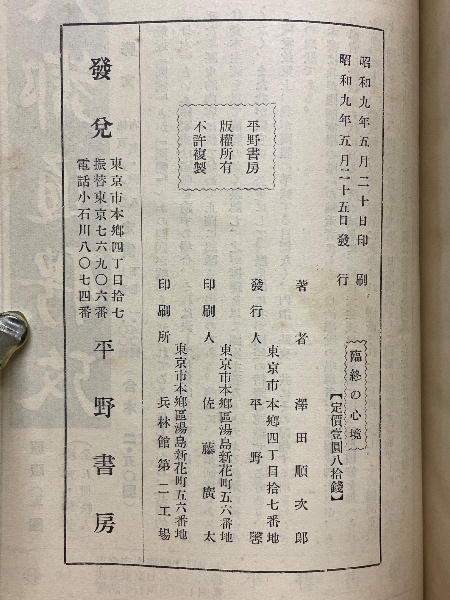 昭和九年五月二十日印刷
昭和九年五月二十五日發行
臨終の心境
【定價壹圓八拾錢】
平野書房
版權所有
不許複製
著者 澤田順次郎
東京市本鄕四丁目拾七番地
發行人 平野馨
東京市本鄕區湯島新花町五六番地
印刷人 佐藤廣太
東京市本鄕區湯島新花町五六番地
印刷所 兵林館第二工場
發兌
東京市本鄕四丁目拾七
振替東京七六九〇六番
電話小石川八〇七四番
平野書房